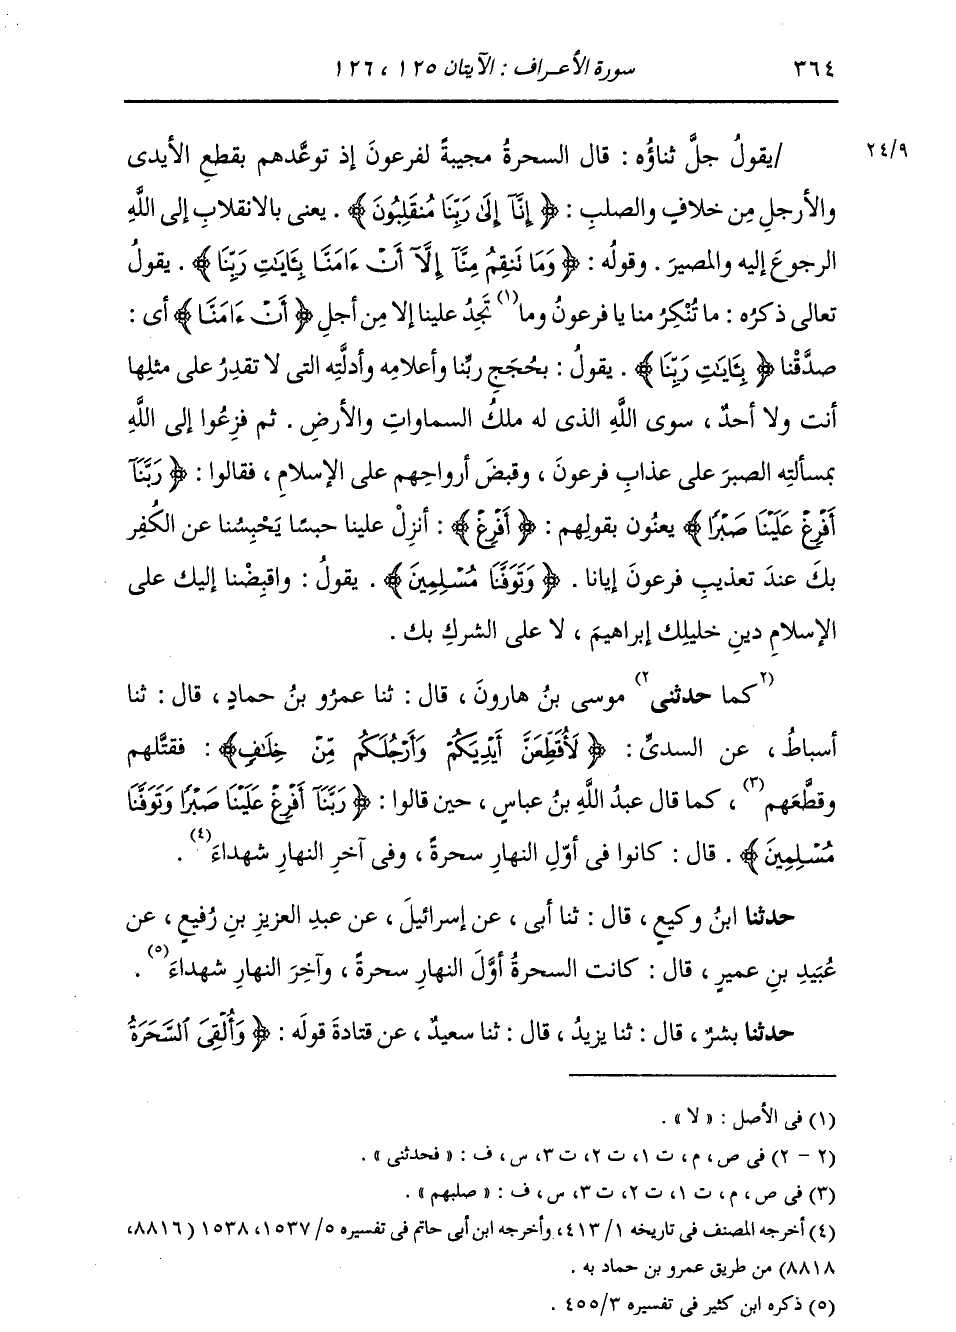 ٣٦٤ سورة الأعراف : الآيتان ١٢٥ ، ١٢٦
٢٤/٩ /يقولُ جلَّ ثناؤُه : قال السحرةُ مجيبةً لفرعونَ إذ توعَّدهم بقطعِ الأيدى
والأرجلِ مِن خلافٍ والصلبِ : ﴿ إِنَّآ إِلَىٰ رَبِّنَا مُنقَلِبُونَ ﴾ . يعنى بالانقلابِ إلى اللَّهِ
الرجوعَ إليه والمصيرَ . وقولُه : ﴿ وَمَا نَنقِمُ مِنَّآ إِلَّآ أَنْ ءَامَنَّا بِـَٔايَـٰتِ رَبِّنَا ﴾ . يقولُ
تعالى ذكرُه : ما تُنْكِرُ منا يا فرعونُ وما(١) تَجِدُ علينا إلا مِن أجلِ ﴿ أَنْ ءَامَنَّا ﴾ أى :
صدَّقْنا ﴿ بِـَٔايَـٰتِ رَبِّنَا ﴾ . يقولُ : بحُجَجِ ربِّنا وأعلامِه وأدلَّتِه التى لا تقدِرُ على مثلِها
أنت ولا أحدٌ ، سوى اللَّهِ الذى له ملكُ السماواتِ والأرضِ . ثم فزِعُوا إلى اللَّهِ
بمسألتِه الصبرَ على عذابِ فرعونَ ، وقبضَ أرواحِهم على الإسلامِ ، فقالوا : ﴿ رَبَّنَآ
أَفْرِغْ عَلَيْنَا صَبْرًا ﴾ يعنُون بقولِهم : ﴿ أَفْرِغْ ﴾ : أنزِلْ علينا حبسًا يَحْبِسُنا عن الكُفِر
بكَ عندَ تعذيبِ فرعونَ إيانا . ﴿ وَتَوَفَّنَا مُسْلِمِينَ ﴾ . يقولُ : واقبِضْنا إليك على
الإسلامِ دينِ خليلِك إبراهيمَ ، لا على الشركِ بك .
(٢)كما حدثنى(٢) موسى بنُ هارونَ ، قال : ثنا عمرُو بنُ حمادٍ ، قال : ثنا
أسباطُ ، عن السدىِّ : ﴿ لَأُقَطِّعَنَّ أَيْدِيَكُمْ وَأَرْجُلَكُم مِّنْ خِلَـٰفٍ﴾ : فقتَّلهم
وقطَّعَهم(٣) ، كما قال عبدُ اللَّهِ بنُ عباسٍ ، حين قالوا : ﴿ رَبَّنَآ أَفْرِغْ عَلَيْنَا صَبْرًا وَتَوَفَّنَا
مُسْلِمِينَ ﴾ . قال : كانوا فى أوّلِ النهارِ سحرةً ، وفى آخرِ النهارِ شهداءَ(٤) .
حدثنا ابنُ وكيعٍ ، قال : ثنا أبى ، عن إسرائيلَ ، عن عبدِ العزيزِ بنِ رُفيعٍ ، عن
عُبَيدِ بنِ عميرٍ ، قال : كانت السحرةُ أوَّلَ النهارِ سحرةً ، وآخِرَ النهارِ شهداءَ(٥) .
حدثنا بشرٌ ، قال : ثنا يزيدُ ، قال : ثنا سعيدٌ ، عن قتادةَ قولَه : ﴿ وَأُلْقِىَ ٱلسَّحَرَةُ
(١) فى الأصل : « لا » .
(٢ - ٢) فى ص ، م ، ت ١، ت ٢، ت ٣، س ، ف : « فحدثنى » .
(٣) فى ص ، م ، ت ١، ت ٢، ت ٣، س ، ف : « صلبهم » .
(٤) أخرجه المصنف فى تاريخه ١/ ٤١٣، وأخرجه ابن أبى حاتم فى تفسيره ٥/ ١٥٣٧، ١٥٣٨ (٨٨١٦،
٨٨١٨) من طريق عمرو بن حماد به .
(٥) ذكره ابن كثير فى تفسيره ٤٥٥/٣ .